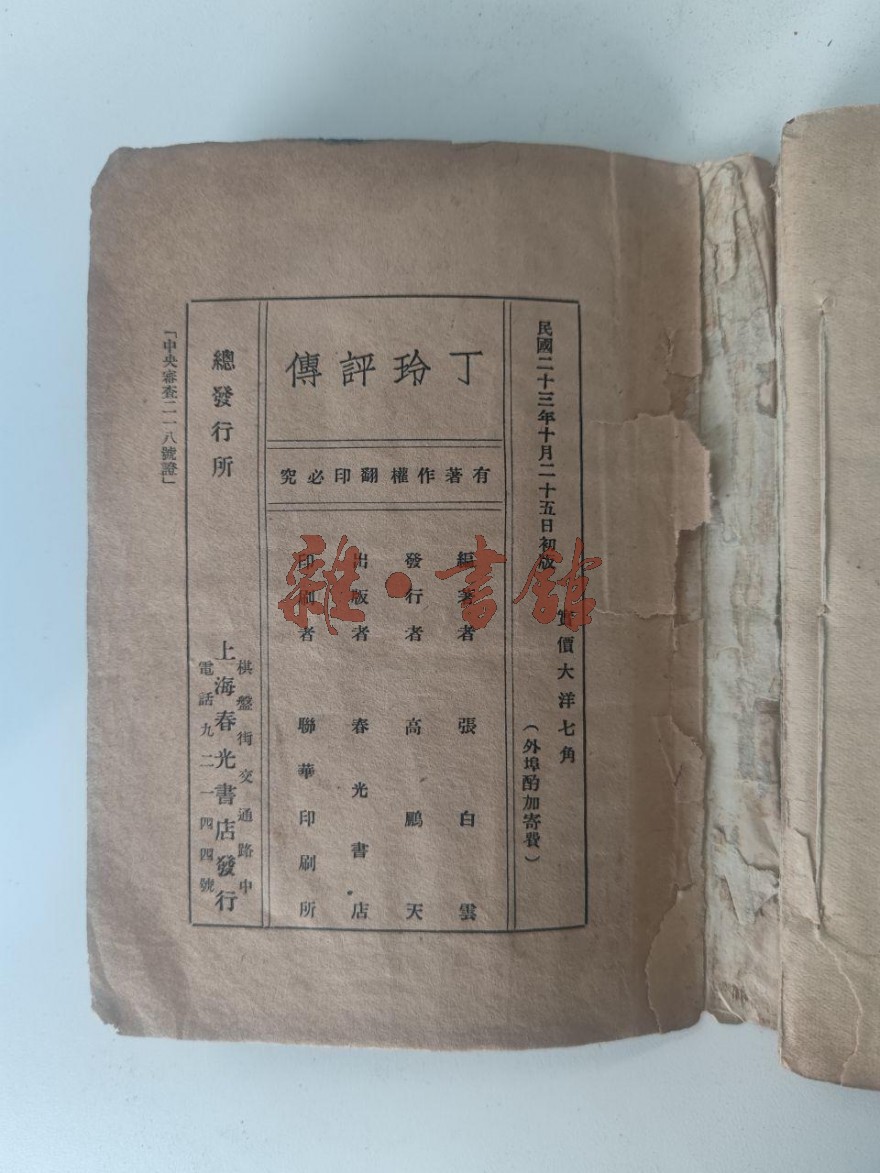 民國二十三年十月二十五日初版
實價大洋七角
（外埠酌加寄費）
丁玲評傳
有著作權翻印必究
編著者　張白雲
發行者　高鵬天
出版者　春光書店
印刷者　聯華印刷所
總發行所
棋盤街交通路中
上海春光書店發行
電話九二一四四號
「中央審查二一八號證」
雜·書館